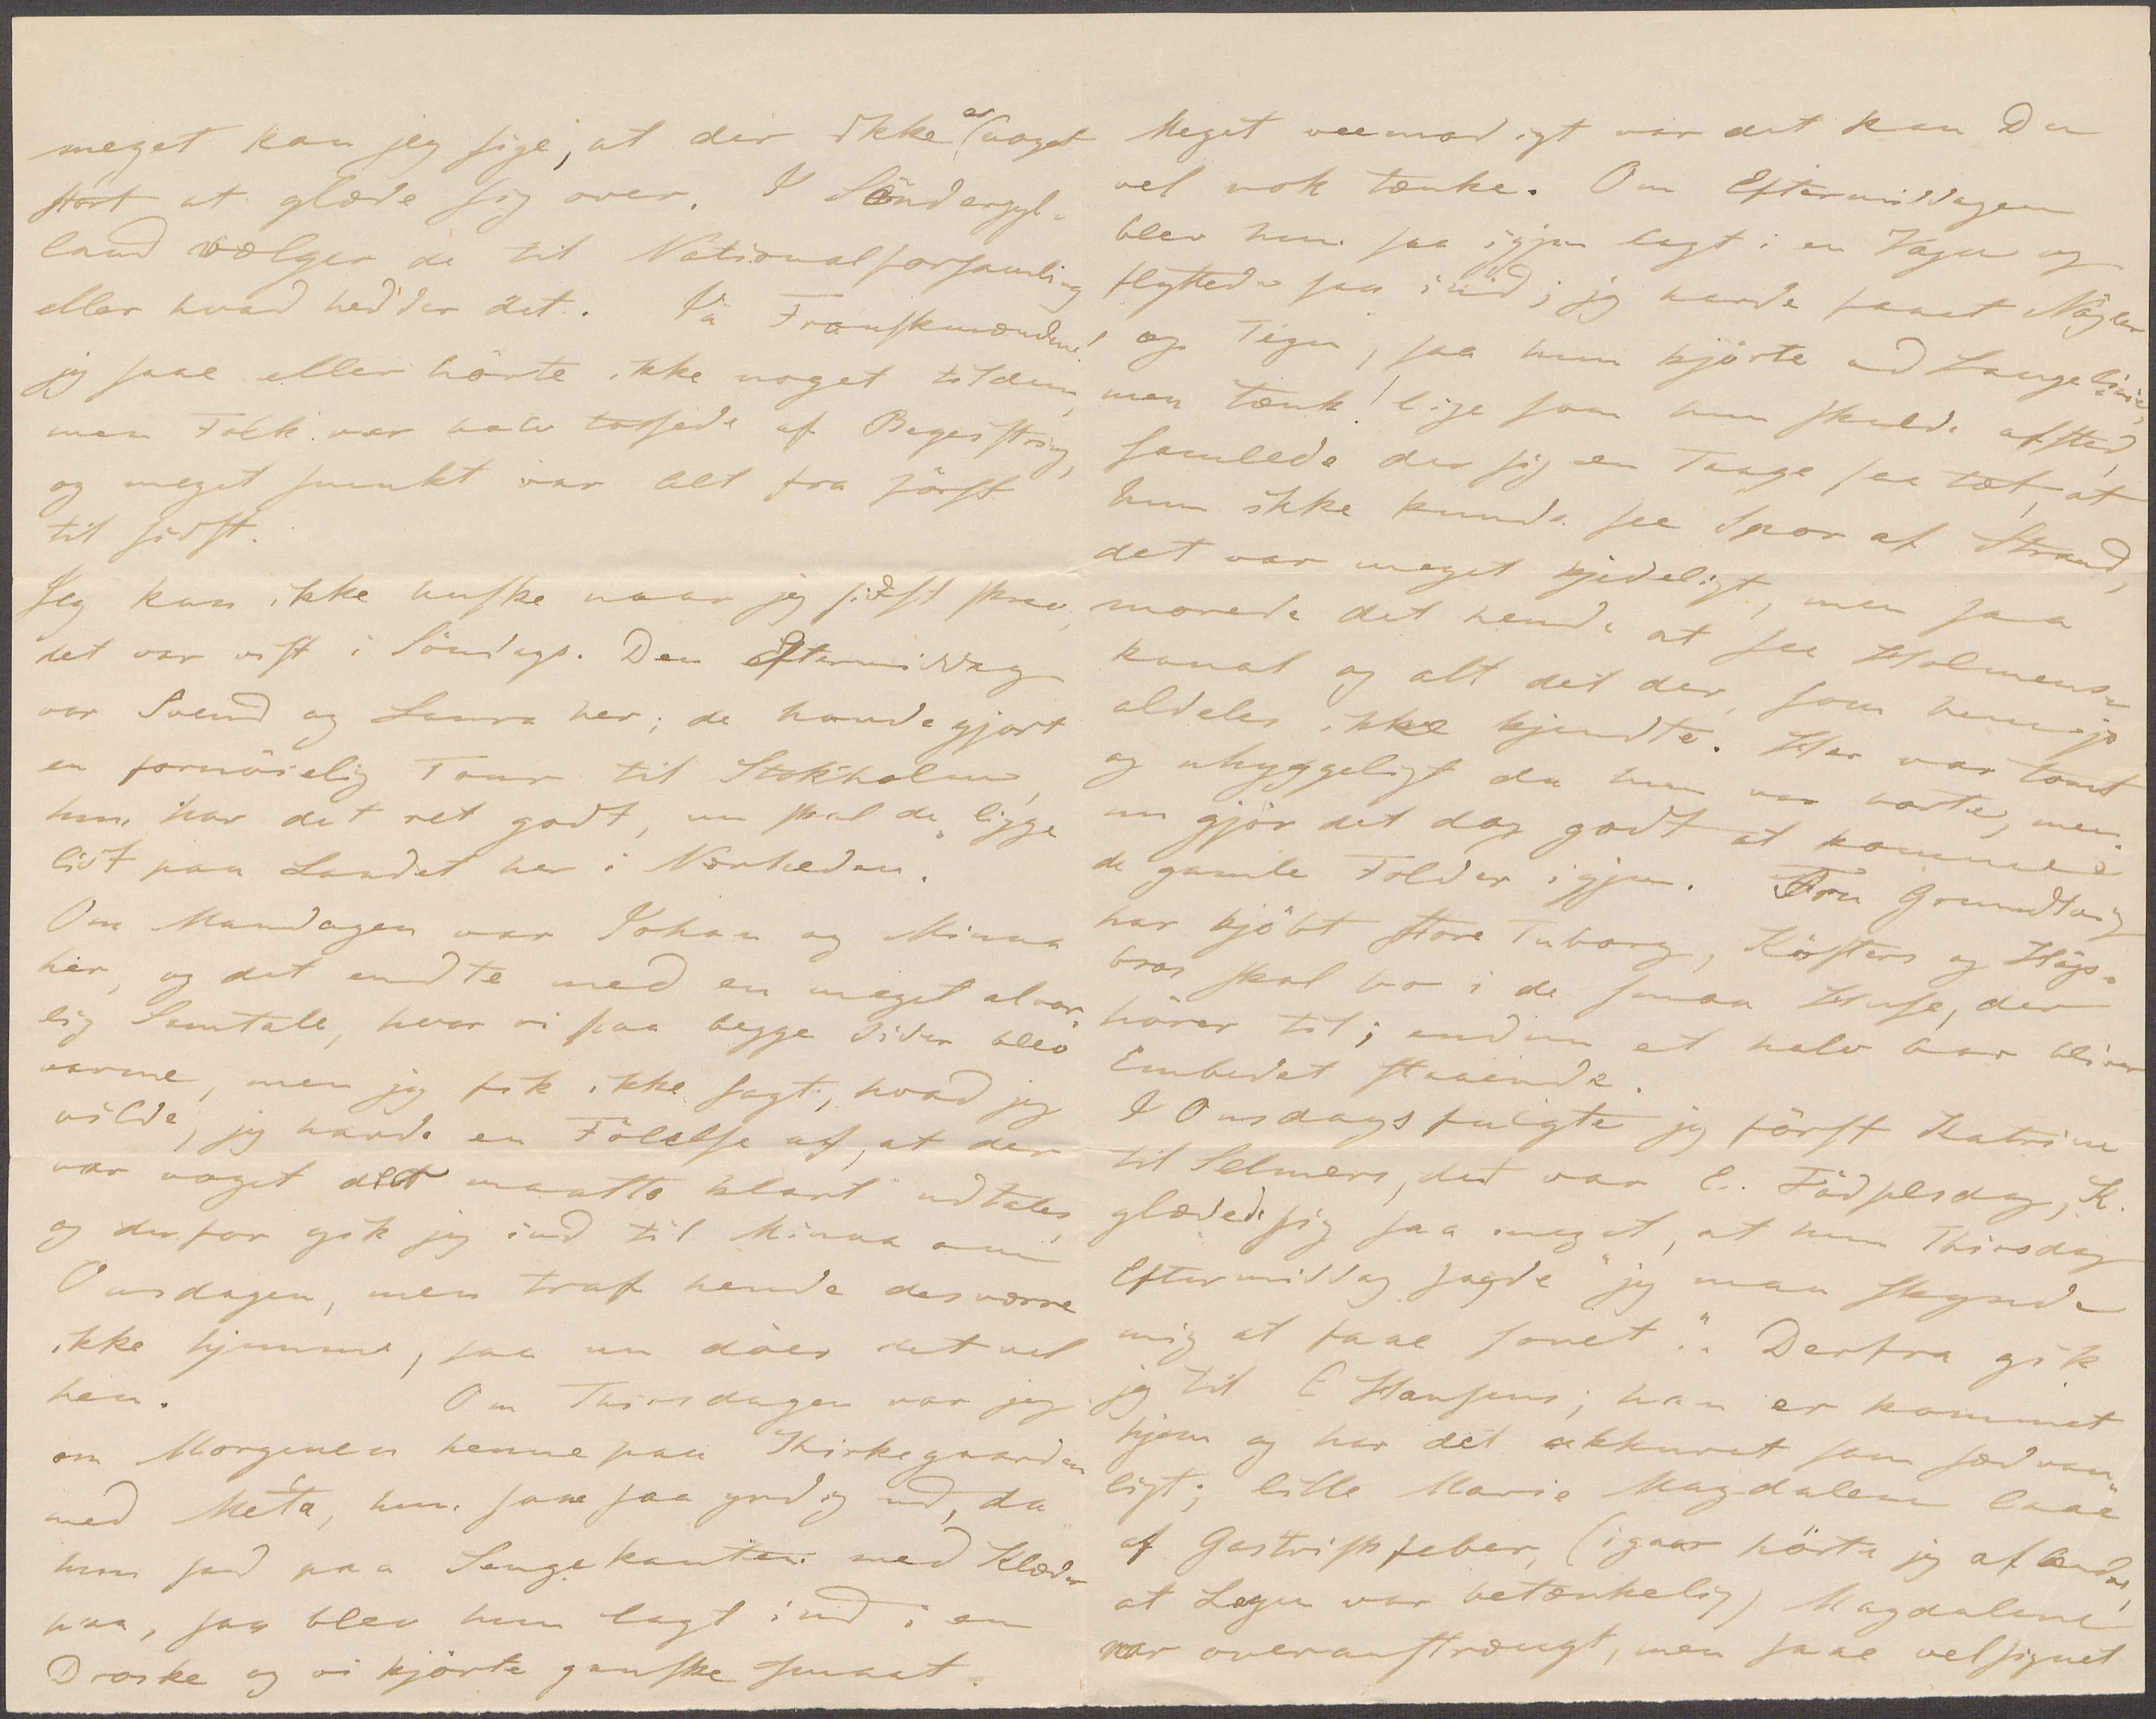 meget kan jeg sige, at der ikke er noget
stort at glæde sig over. I Sönderjyl-
land vælger de til Nationalforsamling
eller hvad hedder det. Ja Franskmændene!
jeg saae eller hörte ikke noget til dem,
men Folk var halv tossede af Begeistring,
og meget smukt var alt fra förft
til sidst.
Jeg kan ikke huske naar jeg sidst skrev,
det var vist i Söndags. Den Eftermiddag
var Svend og Laura her; de havde gjort
en fornöielig Tour til Stokholm,
hun har det ret godt, nu skal de ligge
lidt paa Landet her i Nærheden.
Om Mandagen var Johan og Minna
her, og det endte med en meget alvor-
lig Samtale, hvor vi paa begge Sider blev
varme, men jeg fik ikke sagt, hvad jeg
vilde, jeg havde en Fölelse af, at der
var noget det maatte klart udtales,
og derfor gik jeg ind til Minna om
Onsdagen, men traf hende desværre
ikke hjemme, saa nu döer det vel
hen. Om Thirsdagen var jeg
om Morgenen henne paa Kirkegaarden
med Meta, hun saae saa yndig ud, da
hun sad paa Sengekanten med Klæder
paa, saa blev hun lagt ind i en
Droske og vi kjörte ganske smaat.
Meget veemodigt var det kan Du
vel nok tænke. Om Eftermiddagen
blev hun saa igjen lagt i en Vogn og
flyttede saa ind; jeg havde faaet Nögler
og Tegn, saa hun kjörte ad Langelinie,
men tænk! lige som hun skulde afsted,
samlede der sig en Taage saa tæt, at
hun ikke kunde see Spor af Strand,
det var meget kjedeligt, men saa
morede det hende at see Holmens-
kanal og alt det der, som hun jo
aldeles ikke kjendte. Her var tomt
og uhyggeligt da hun var borte, men
nu gjör det dog godt at komme i
de gamle Folder igjen. Fru Grundtvig
har kjöbt store Tuborg, Kösters og Höjs-
bros skal bo i de smaa Huse, der
hörer til; endnu et halv Aar bliver
Embedet staaende.
I Onsdags fulgte jeg först Katrine
til Selmers, det var E. Födselsdag, K.
glædede sig saa meget, at hun Thirsdag
Eftermiddag sagde "jeg maa skynde
mig at faae sovet". Derfra gik
jeg til C Hansens; han er kommet
hjem og har det akkurat som sædvan-
ligt; lille Marie Magdalene laae
af Gastriskfeber, (igaar hörte jeg af andre,
at Legen var betænkelig) Magdalene
var overanstrængt, men saae velsignet